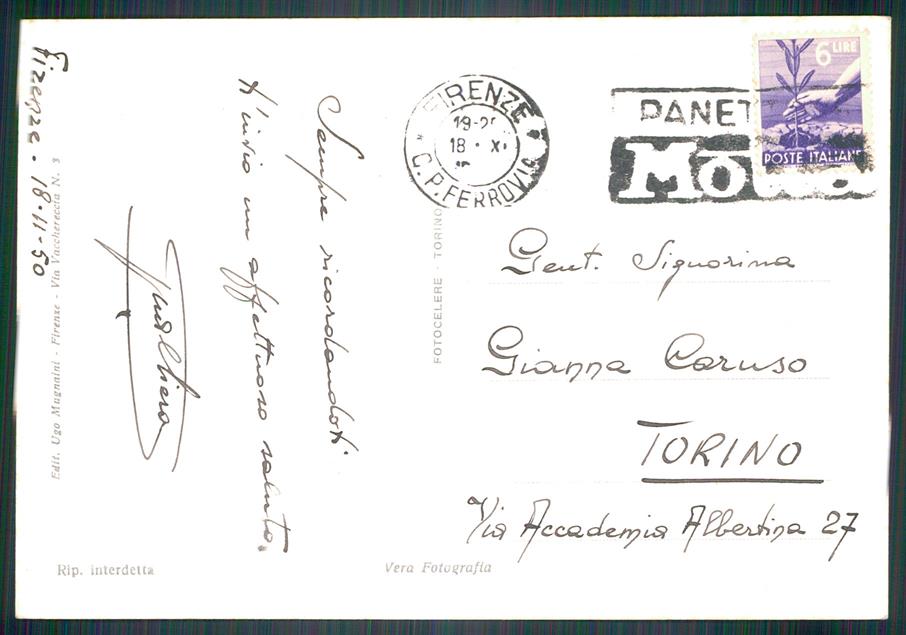 Firenze. 18-11-50
Sempre ricordandoti
t'invio un affettuoso saluto.
Edit. Ugo Mugnaini - Firenze - Via Vacchereccia N. 3
Rip. interdetta
Vera Fotografia
FOTOCELERE - TORINO
FIRENZE
18 · XI
C.P. FERROVIA
PANET
Motta
6 LIRE
POSTE ITALIANE
Gent. Signorina
Gianna Caruso
TORINO
Via Accademia Albertina 27